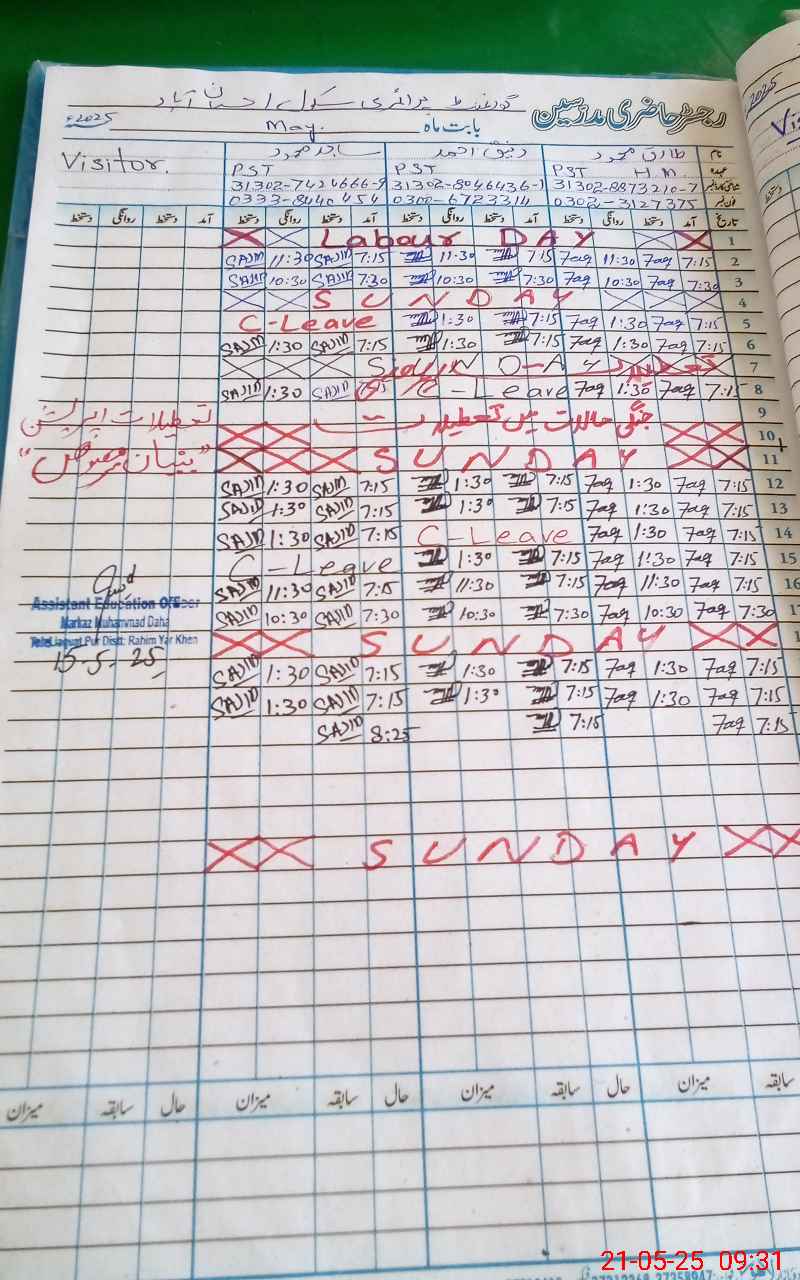 رجسٹر حاضری مدرسین
گورنمنٹ پرائمری سکول احسان آباد
بابت ماہ May. 2025ء
نام طارق محمود رفیق احمد ساجد محمود Visitor.
عہدہ PST H.M PST PST
31302-8873210-7 31302-8046436-1 31302-7424666-9
فون نمبر 0302-3127375 0300-6723314 0333-8440454
تاریخ آمد دستخط روانگی دستخط آمد دستخط روانگی دستخط آمد دستخط روانگی دستخط آمد دستخط روانگی دستخط
1 Labour DAY
2 7:15 7aq 11:30 7aq 7:15 11:30 7:15 SAJID 11:30 SAJID
3 7:30 7aq 10:30 7aq 7:30 10:30 7:30 SAJID 10:30 SAJID
4 SUNDAY
5 7:15 7aq 1:30 7aq 7:15 1:30 C-Leave
6 7:15 7aq 1:30 7aq 7:15 1:30 7:15 SAJID 1:30 SAJID
7
8 7:15 7aq 1:30 7aq C-Leave SAJID 1:30 SAJID
9 جنگی حالات میں تعطیلات
تعطیلات آپریشن
10
"بنیان مرصوص"
11 SUNDAY
12 7:15 7aq 1:30 7aq 7:15 1:30 7:15 SAJID 1:30 SAJID
13 7:15 7aq 1:30 7aq 7:15 1:30 7:15 SAJID 1:30 SAJID
14 7:15 7aq 1:30 7aq C-Leave 7:15 SAJID 1:30 SAJID
15 7:15 7aq 1:30 7aq 7:15 1:30 C-Leave
16 7:15 7aq 11:30 7aq 7:15 11:30 7:15 SAJID 11:30 SAJID
17 7:30 7aq 10:30 7aq 7:30 10:30 7:30 SAJID 10:30 SAJID
Assistant Education Officer
Markaz Muhammad Daha
Tehsil Liaquat Pur Distt: Rahim Yar Khan
15-5-25
SUNDAY
7:15 7aq 1:30 7aq 7:15 1:30 7:15 SAJID 1:30 SAJID
7:15 7aq 1:30 7aq 7:15 1:30 7:15 SAJID 1:30 SAJID
7:15 7aq 7:15 8:25 SAJID
SUNDAY
سابقہ میزان حال سابقہ میزان حال سابقہ میزان حال سابقہ میزان
21-05-25 09:31